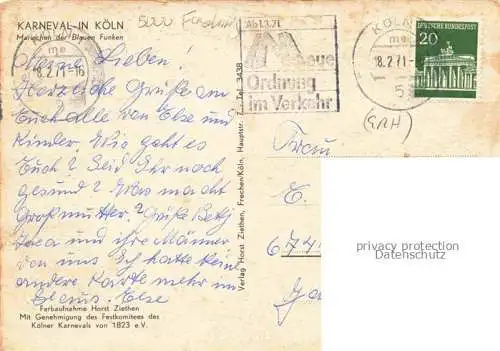 KARNEVAL IN KÖLN
Mariechen der Blauen Funken
5000
Meine Lieben!
Herzliche Grüße an
Euch alle von Else und
Kinder. Wie geht es
Euch? Seid Ihr noch
gesund? Was macht
Großmutter? Grüße Betj
und ihre Männer
von uns Ich hatte keine
andere Karte mehr im
Haus. Else
Farbaufnahme Horst Ziethen
Mit Genehmigung des Festkomitees des
Kölner Karnevals von 1823 e.V.
Verlag Horst Ziethen, Frechen/Köln, Hauptstr. Tel. 3438
18.2.71-16
Ab 1.3.71
neue
Ordnung
im Verkehr
KÖLN
me
18.2.71-
5
DEUTSCHE BUNDESPOST
20
Frau
E.
674
privacy protection
Datenschutz